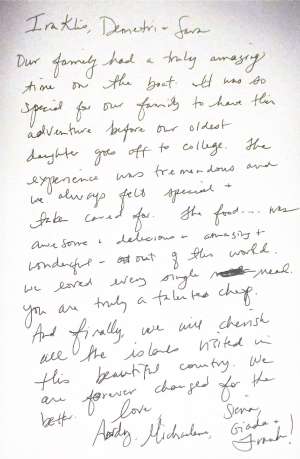 Iraklis, Demetri + Sara
Our family had a truly amazing
time on the boat. It was so
special for our family to have this
adventure before our oldest
daughter goes off to college. The
experience was tremendous and
we always felt special +
taken cared for. The food... was
awesome + delicious + amazing +
wonderful - out of this world.
we loved every single meal.
You are truly a talented chef.
And finally, we will cherish
all the islands visited in
this beautiful country. We
are forever changed for the
better.
Love,
Andy, Michaelene, Siena,
Giada +
Frank!